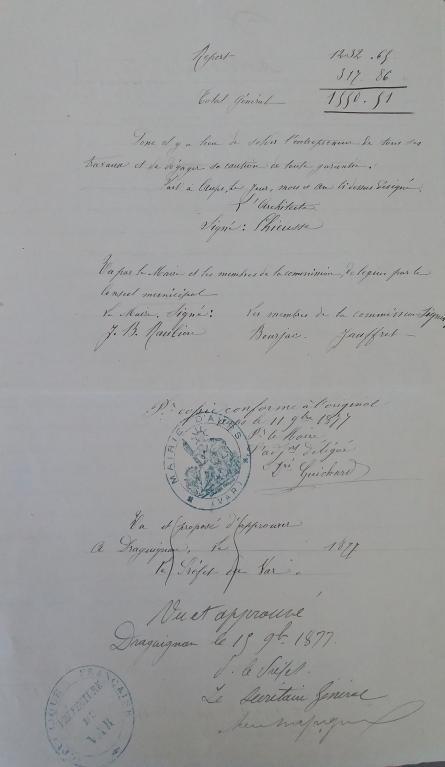 Report 1232.65
317.86
Total Général 1550.51
Donc il y a lieu de solder l'entrepreneur de tous ses
travaux et de dégager sa caution de toute garantie.
Fait à Aups, le jour, mois et an ci-dessus désigné.
L'Architecte
Signé:
Vu par le Maire et les membres de la commission, délégués par le
Conseil municipal
Le Maire, Signé: Les membres de la commission Signé
J. B. Bourjac Jauffret
Pr copie conforme à l'original
Aups le 11 9bre 1877
Pr le Maire
l'adjt délégué
Guichard
MAIRIE D'AUPS
(VAR)
Vu et proposé d'approuver
A Draguignan, le 1877
Le Préfet du Var.
Vu et approuvé
Draguignan le 15 9b. 1877.
P. le Préfet
Le Secrétaire Général
FRANÇAISE
PREFECTURE
DU
VAR